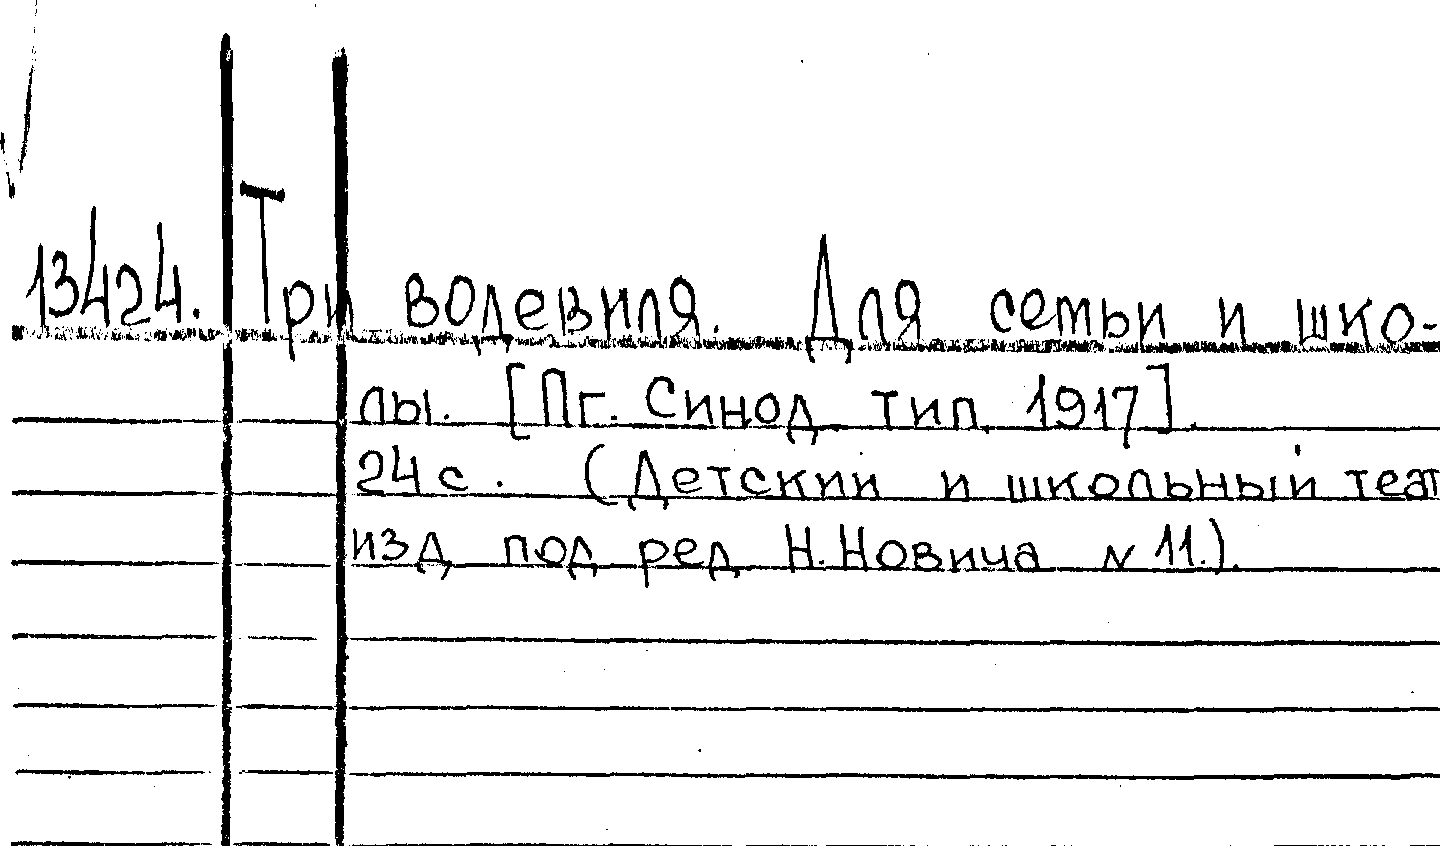 13424. Три водевиля. Для семьи и шко-
лы. [Пг. Синод. тип. 1917].
24 с. (Детский и школьный теат
изд под ред Н. Новича № 11.).